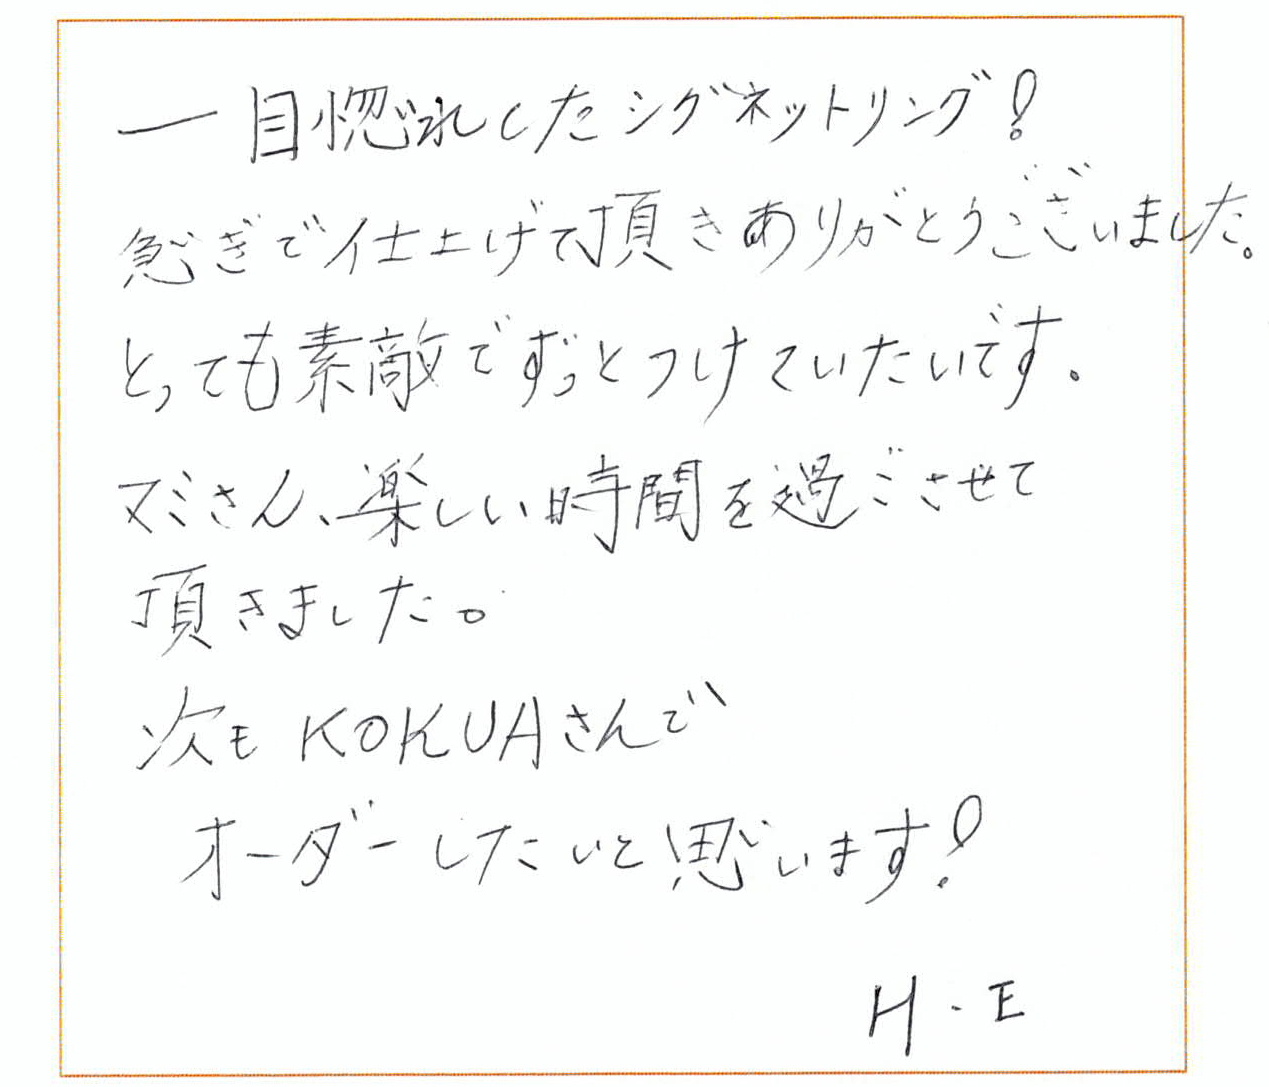 一目惚れしたシグネットリング!
急ぎで仕上げて頂きありがとうございました。
とっても素敵でずっとつけていたいです。
マミさん、楽しい時間を過ごさせて
頂きました。
次もKOKUAさんで
オーダーしたいと思います!
H.E